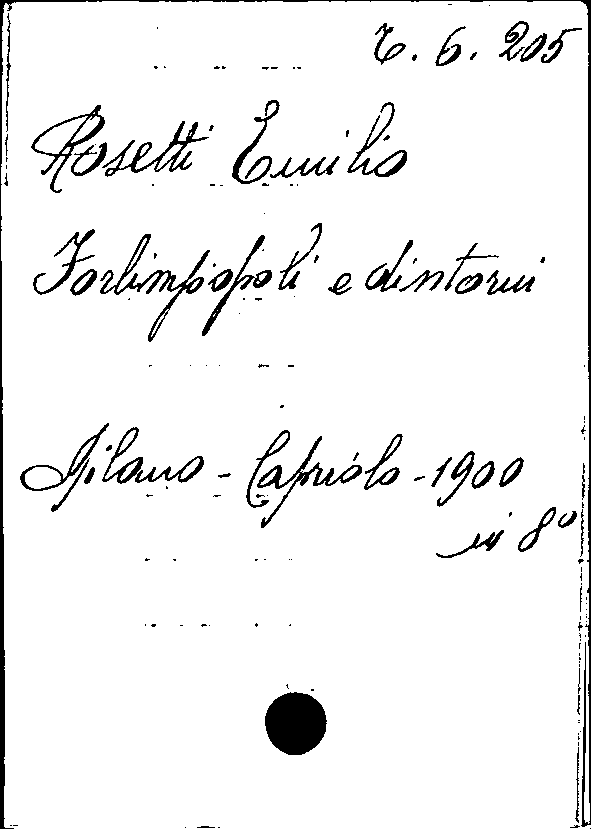 6. 6. 205
Rosetti Emilio
Forlimpopoli e dintorni
Milano - Capriolo - 1900
in 8º